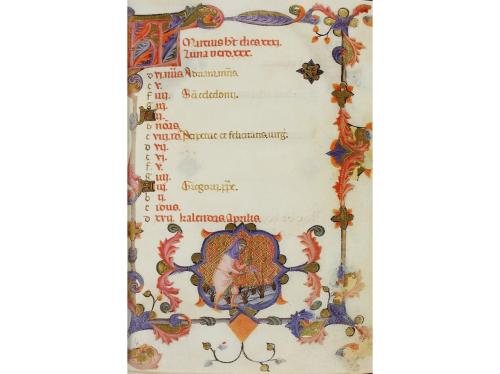 KL Martius ht dies xxxi.
Luna vero. xxx.
d vi. nūs. Adriani. mris.
e v.
f iiii. Sci celedonii.
g iii.
b nōas.
c viii. id' Perpetue et felicitatis. virg.
d vii.
e vi.
f v.
g iiii.
iii. Gregorii. ppe.
b ii.
c idus.
d xvii. kalendas Aprilis.